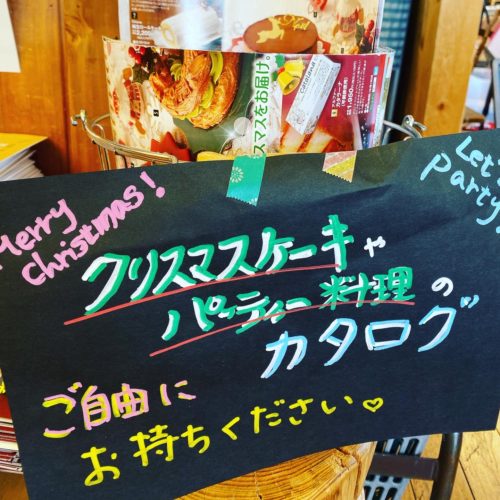 スマスをお届け。
Merry
christmas!
Let's
party!
クリスマスケーキや
パッティー料理の
カタログ
ご自由に
お持ちください♡